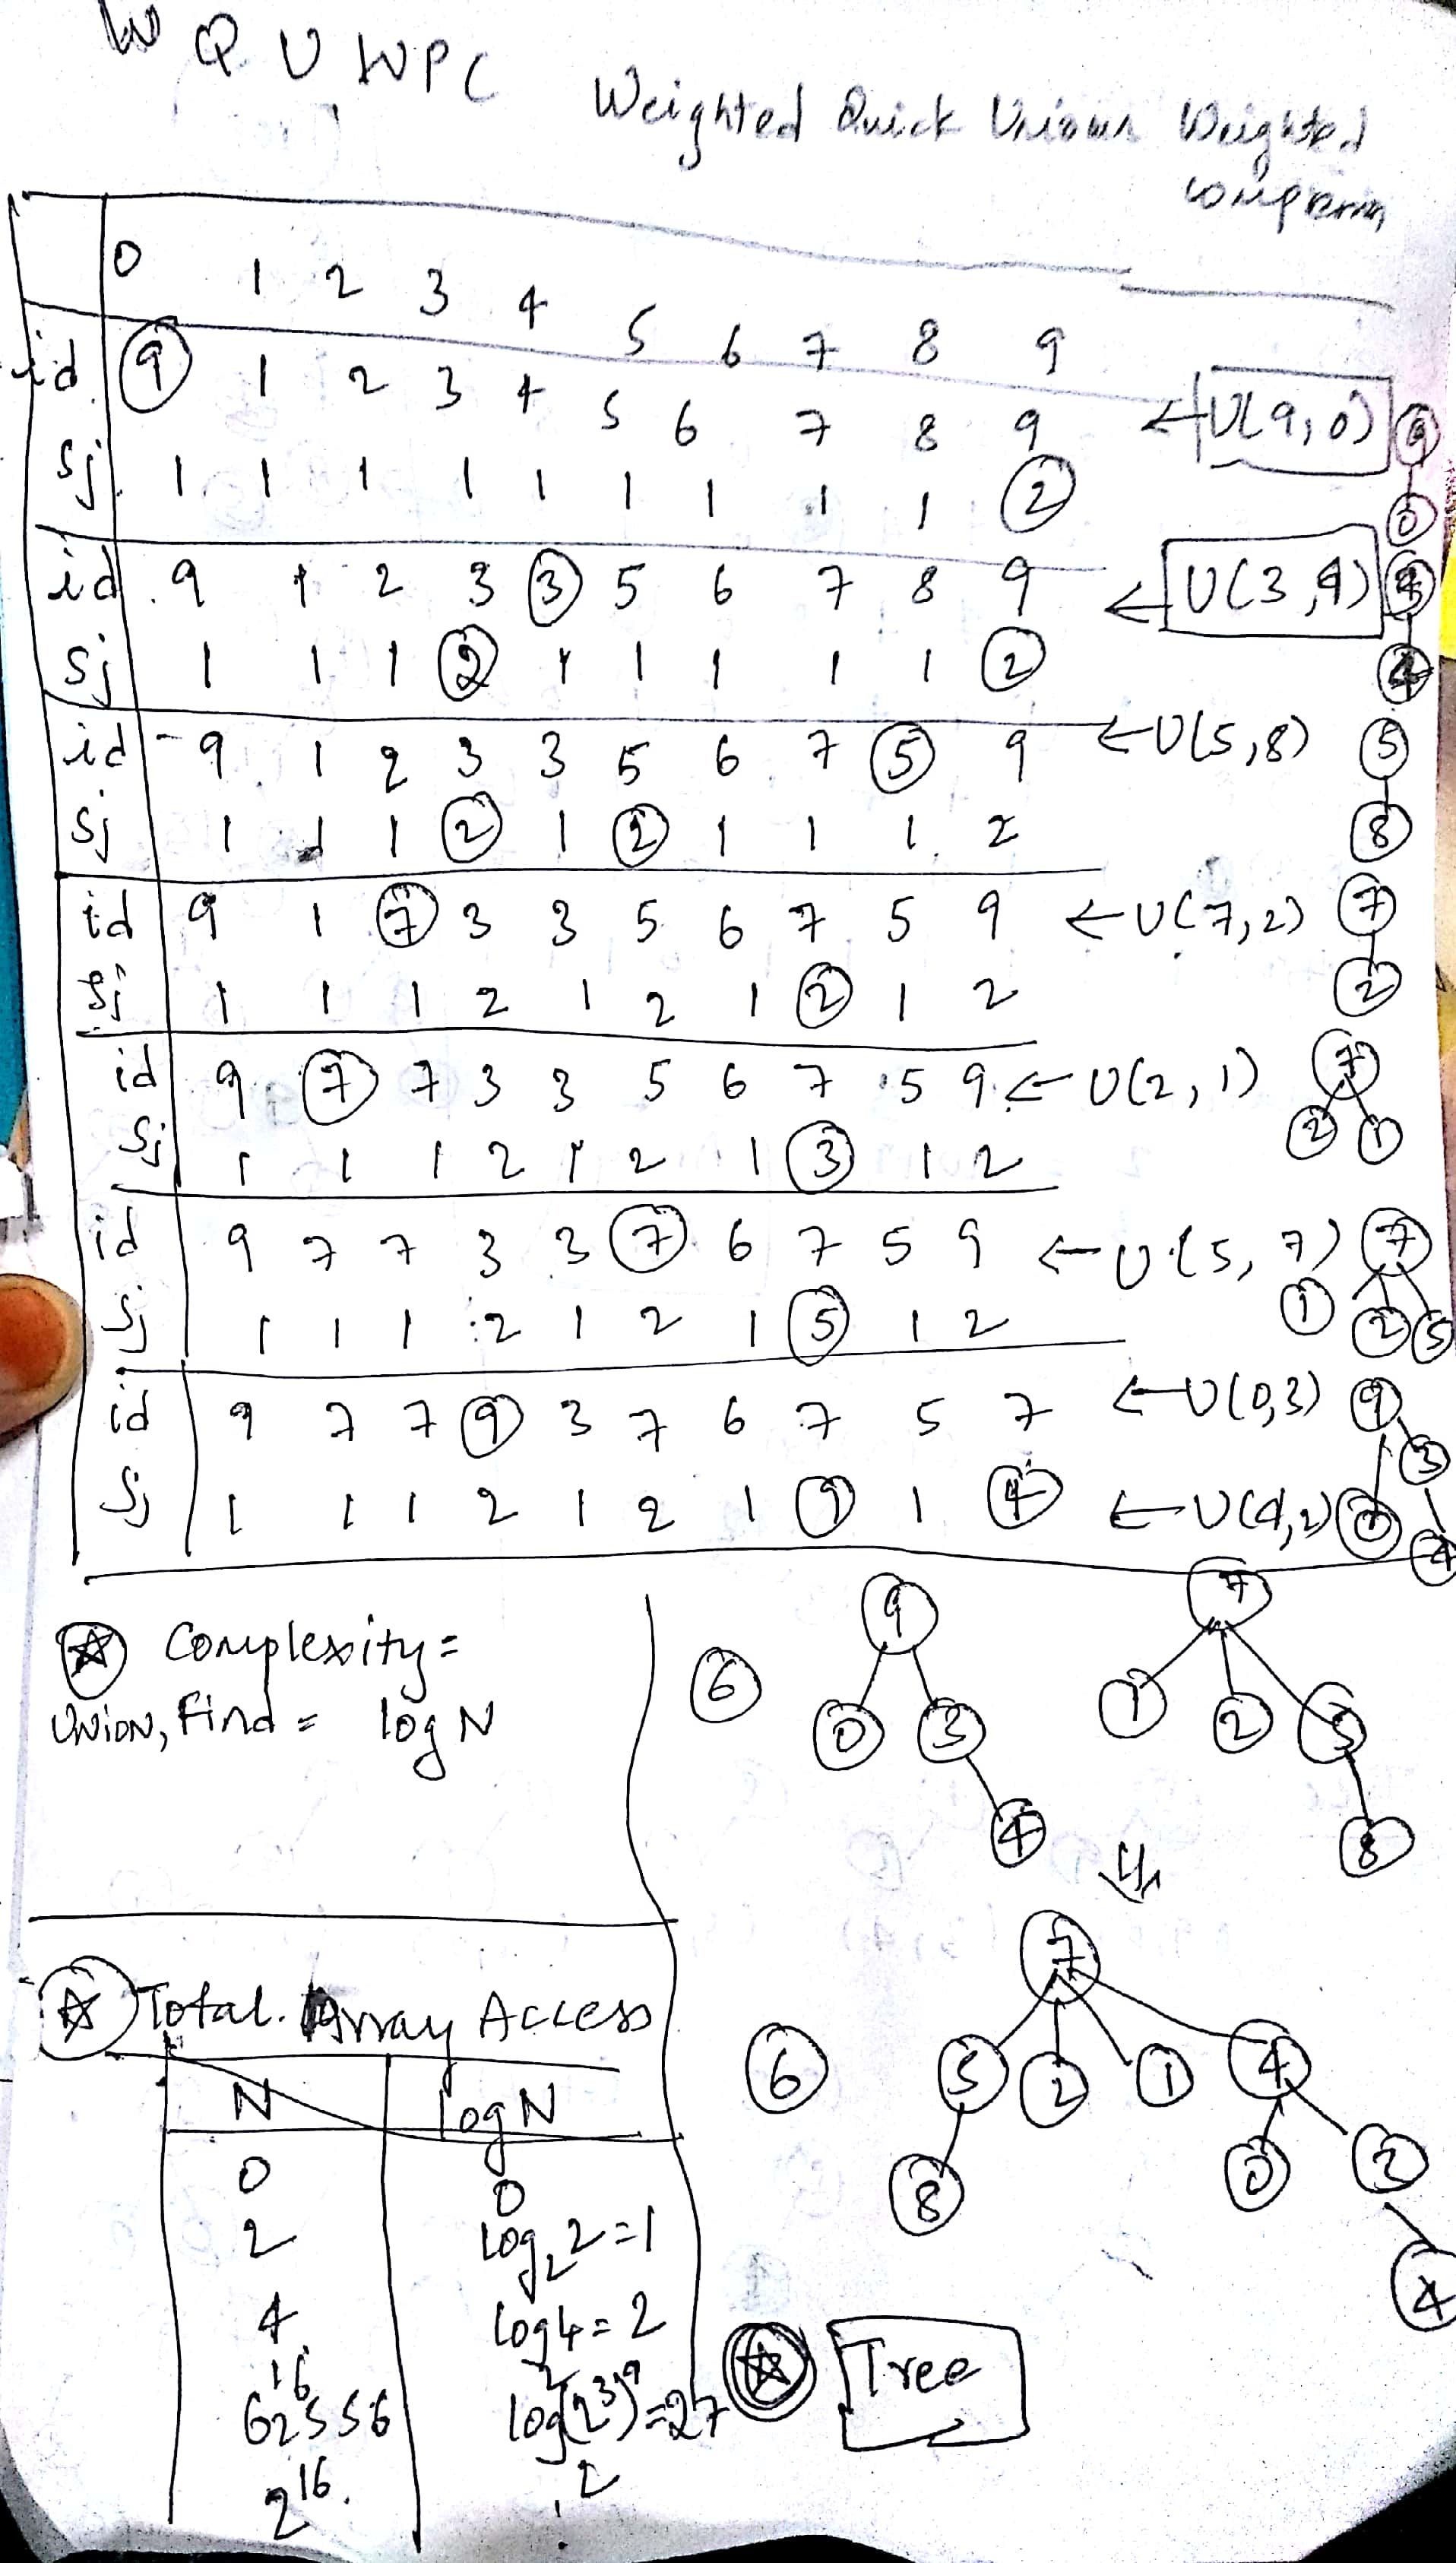 W Q U W P C
Weighted Quick Unioun Weighted
0 1 2 3 4 5 6 7 8 9
id 9 1 2 3 4 5 6 7 8 9 ← U(9,0) 9
sj 1 1 1 1 1 1 1 1 1 2 0
id 9 1 2 3 3 5 6 7 8 9 ← U(3,4)
sj 1 1 1 2 1 1 1 1 1 2 4
id 9 1 2 3 3 5 6 7 5 9 ← U(5,8) 5
sj 1 1 1 2 1 2 1 1 1 2 8
id 9 1 7 3 3 5 6 7 5 9 ← U(7,2) 7
sj 1 1 1 2 1 2 1 2 1 2 2
id 9 7 7 3 3 5 6 7 5 9 ← U(2,1) 7
sj 1 1 1 2 1 2 1 3 1 2 2 1
id 9 7 7 3 3 7 6 7 5 9 ← U(5,7) 7
sj 1 1 1 2 1 2 1 5 1 2 1 2 5
id 9 7 7 9 3 7 6 7 5 7 ← U(0,3) 9 3
sj 1 1 1 2 1 2 1 9 1 4 ← U(4,2) 0 4
Complexity =
Union, Find = log N
6 9 7
0 3 1 2 5
4 8
Total Array Access
N log N
0 0
2 log₂2=1
4 log4=2
16
62556 log(2³)⁹=27
2¹⁶. 2
7
6 5 2 1 4
8 0 3
4
Tree